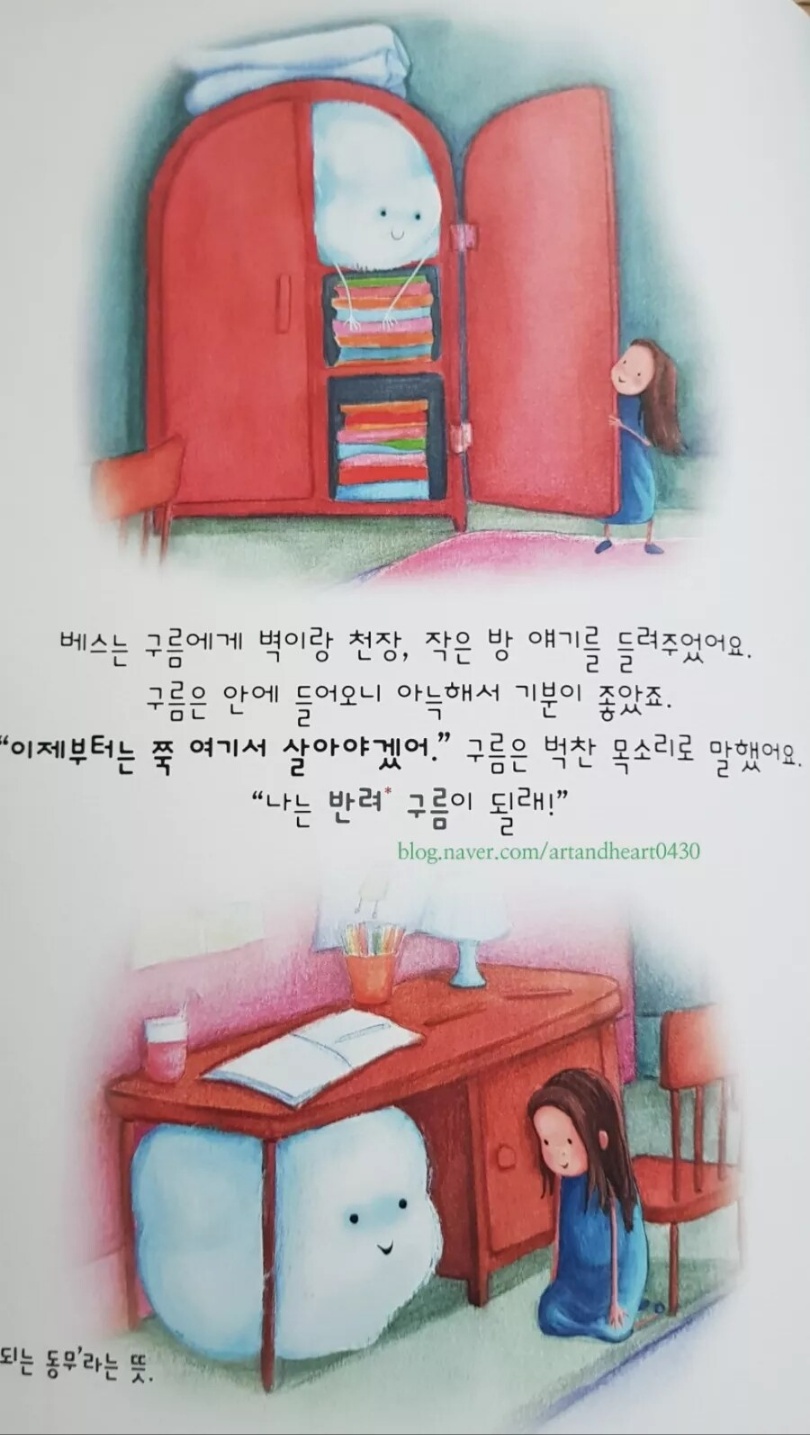 베스는 구름에게 벽이랑 천장, 작은 방 얘기를 들려주었어요.
구름은 안에 들어오니 아늑해서 기분이 좋았죠.
“이제부터는 쭉 여기서 살아야겠어.” 구름은 벅찬 목소리로 말했어요.
“나는 반려* 구름이 될래!”
blog.naver.com/artandheart0430
되는 동무’라는 뜻.